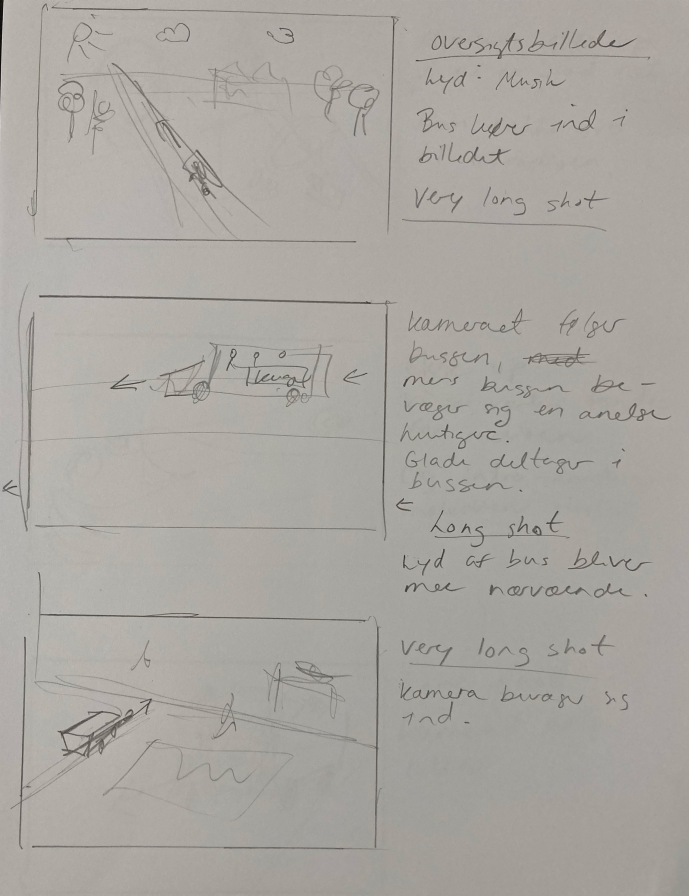 oversigtsbillede
Lyd: Musik
Bus kører ind i
billedet
Very long shot
kameraet følger
bussen,
mens bussen be-
væger sig en anelse
hurtigere.
Glade deltager i
bussen.
Long shot
Lyd af bus bliver
mere nærværende.
Very long shot
kamera bevæger sig
ind.